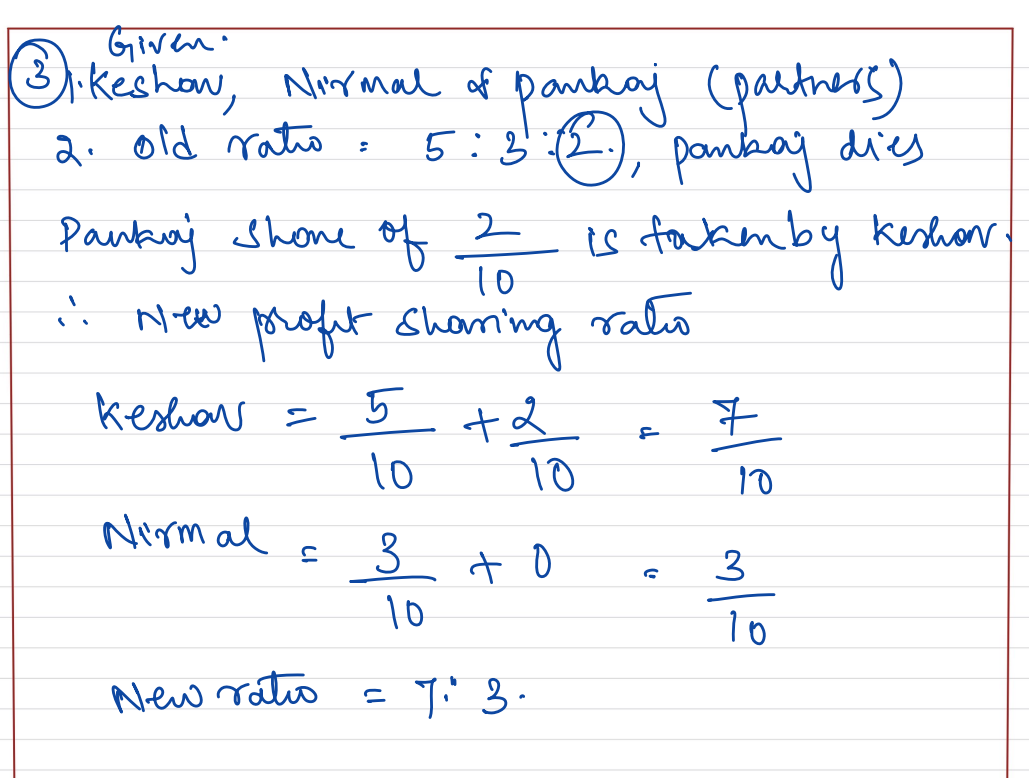 Given.
③ 1. Keshav, Nirmal & pankaj (partners)
2. Old ratio = 5 : 3 : 2., pankaj dies
Pankaj share of 2/10 is taken by Keshav.
∴ New profit sharing ratio
Keshav = 5/10 + 2/10 = 7/10
Nirmal = 3/10 + 0 = 3/10
New ratio = 7 : 3.